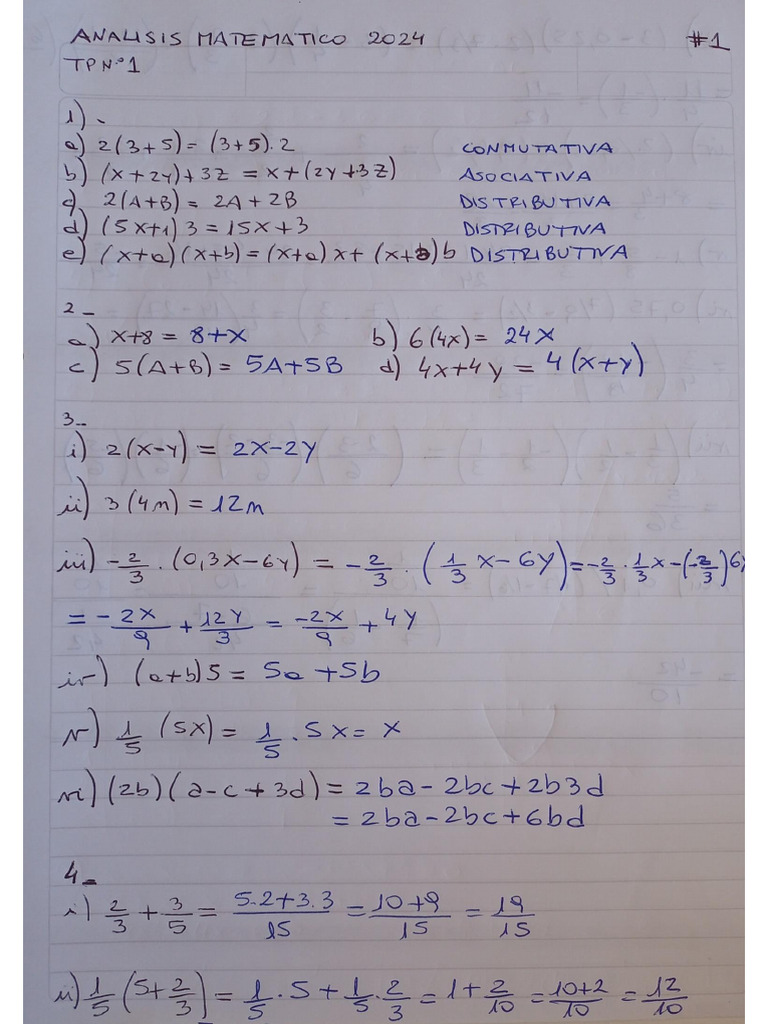 ANALISIS MATEMATICO 2024 #1
TP N°1
1) -
a) 2(3+5) = (3+5).2 CONMUTATIVA
b) (x+2y)+3z = x+(2y+3z) ASOCIATIVA
c) 2(A+B) = 2A+2B DISTRIBUTIVA
d) (5x+1)3 = 15x+3 DISTRIBUTIVA
e) (x+a)(x+b) = (x+a)x + (x+a)b DISTRIBUTIVA
2 -
a) x+8 = 8+x b) 6(4x) = 24x
c) 5(A+B) = 5A+5B d) 4x+4y = 4(x+y)
3 -
i) 2(x-y) = 2x-2y
ii) 3(4m) = 12m
iii) -2/3 . (0,3x-6y) = -2/3 . (1/3 x-6y) = -2/3 . 1/3 x -(-2/3)6y
= -2x/9 + 12y/3 = -2x/9 + 4y
iv) (a+b)5 = 5a+5b
v) 1/5 (5x) = 1/5 . 5x = x
vi) (2b)(a-c+3d) = 2ba-2bc+2b3d
= 2ba-2bc+6bd
4 -
i) 2/3 + 3/5 = 5.2+3.3/15 = 10+9/15 = 19/15
ii) 1/5 (5+2/3) = 1/5 . 5 + 1/5 . 2/3 = 1+2/10 = 10+2/10 = 12/10